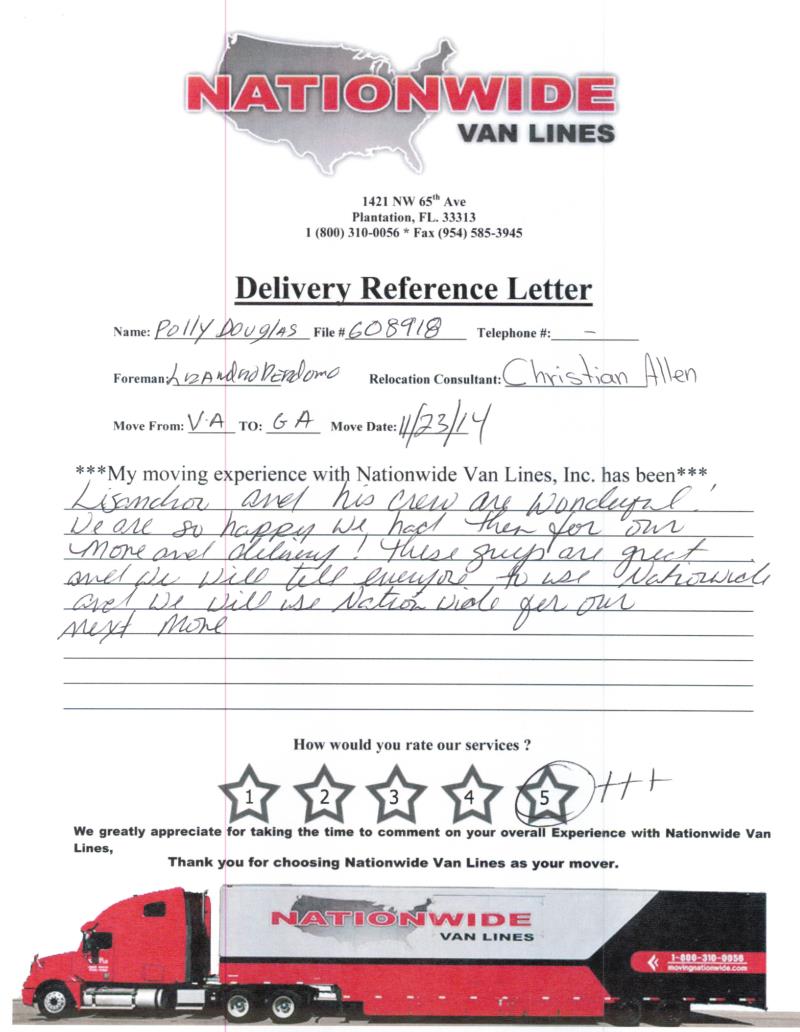 NATIONWIDE
VAN LINES
1421 NW 65th Ave
Plantation, FL. 33313
1 (800) 310-0056 * Fax (954) 585-3945
Delivery Reference Letter
Name: Polly Douglas File # 608918 Telephone #: -
Foreman: Lizandro Perdomo Relocation Consultant: Christian Allen
Move From: VA TO: GA Move Date: 11/23/14
***My moving experience with Nationwide Van Lines, Inc. has been***
and his crew are wonderful!
We are so happy we had them for our
move and delivery! These guys are great
and we will tell everyone to use Nationwide
and we will use Nation wide for our
next move
How would you rate our services ?
1 2 3 4 5 +++
We greatly appreciate for taking the time to comment on your overall Experience with Nationwide Van
Lines,
Thank you for choosing Nationwide Van Lines as your mover.
NATIONWIDE
VAN LINES
1-800-310-0056
movingnationwide.com